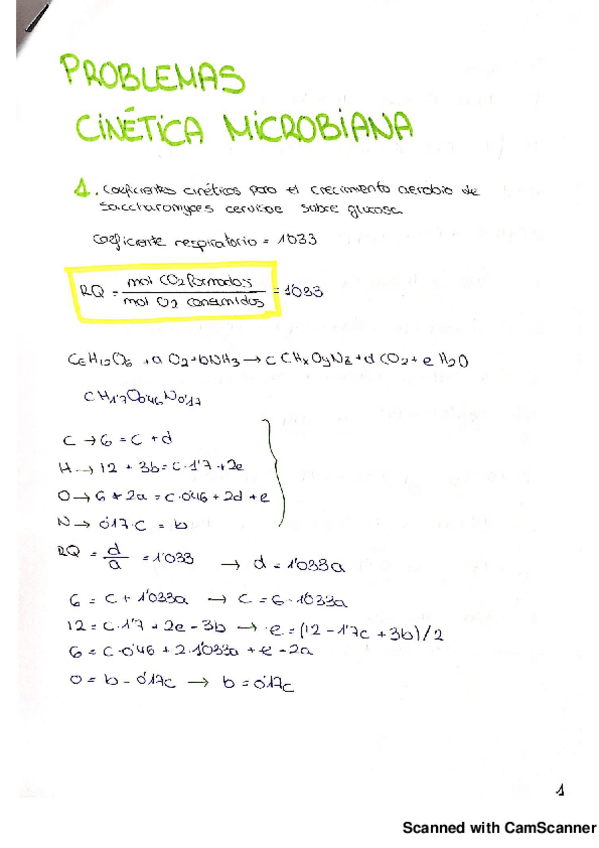 PROBLEMAS
CINÉTICA MICROBIANA
1. Coeficientes cinéticos para el crecimiento aerobio de
Saccharomyces cervicae sobre glucosa.
Coeficiente respiratorio = 1'033
RQ = mol CO2 formados / mol O2 consumidos = 1'033
C6H12O6 + a O2 + bNH3 → c CHxOyNz + d CO2 + e H2O
CH1'7O0'46N0'17
C → 6 = c + d
H → 12 + 3b = c·1'7 + 2e
O → 6 + 2a = c·0'46 + 2d + e
N → 0'17·c = b
RQ = d/a = 1'033 → d = 1'033a
6 = c + 1'033a → c = 6 - 1'033a
12 = c·1'7 + 2e - 3b → e = (12 - 1'7c + 3b)/2
6 = c·0'46 + 2·1'033a + e - 2a
0 = b - 0'17c → b = 0'17c
1
Scanned with CamScanner